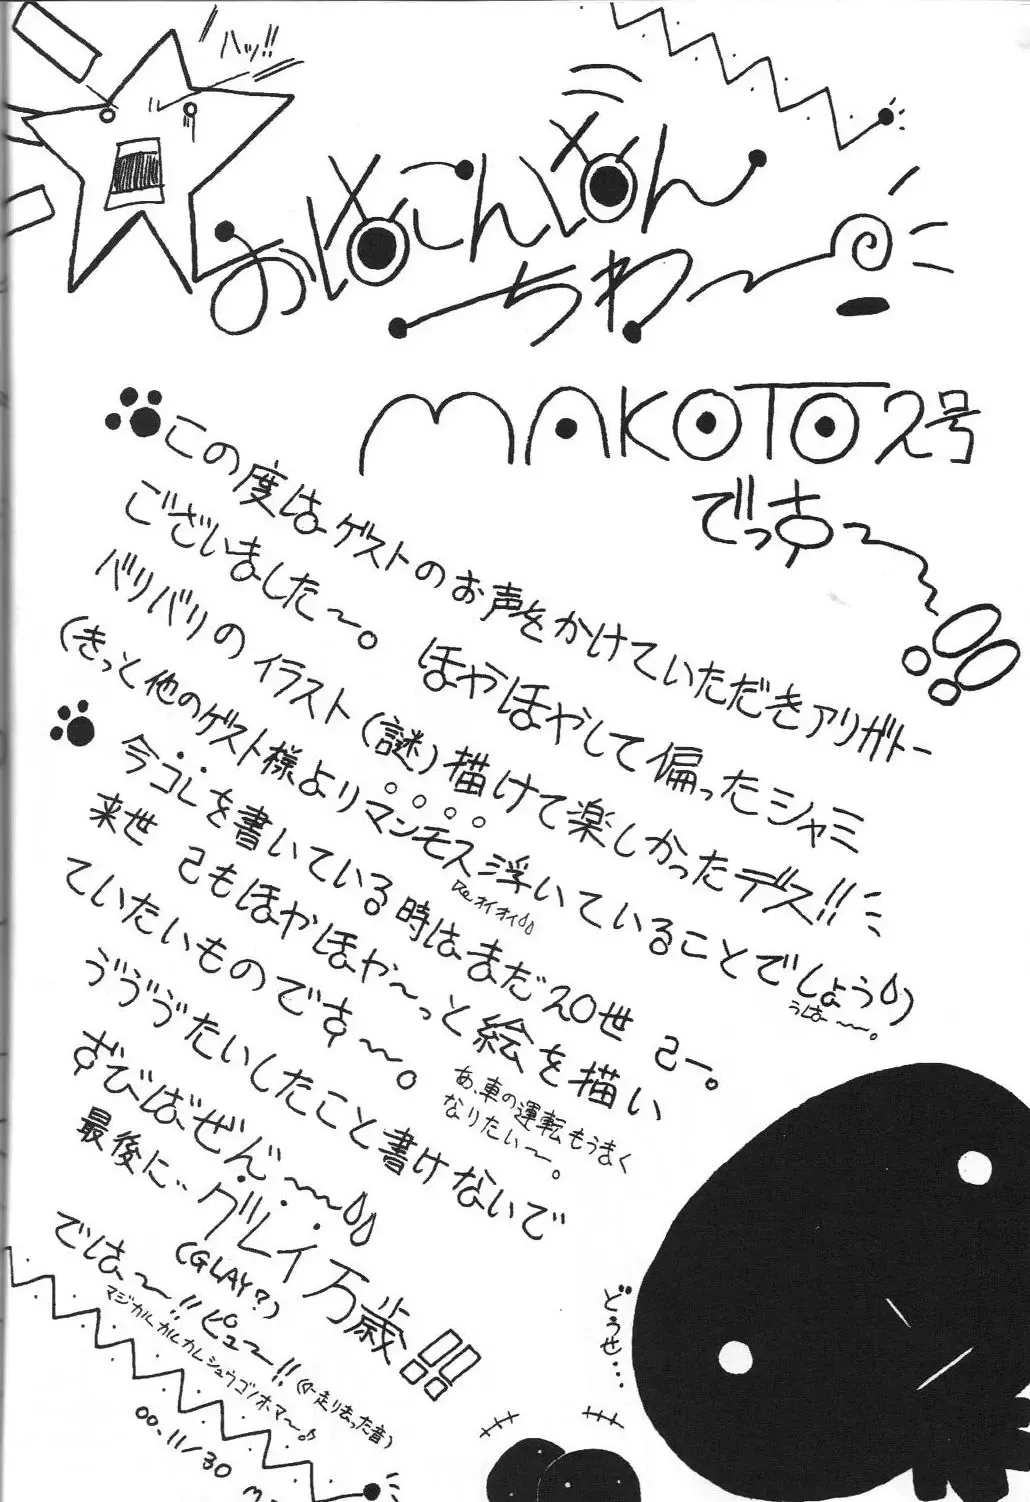 ハッ!!
MAKOTO2号
でっす〜〜!!
この度はゲストのお声をかけていただきアリガトー
ございました〜。ほやほやして偏ったシャミ
バリバリのイラスト(謎)描けて楽しかったデス!!
(きっと他のゲスト様よりマンモス浮いていることでしょう
うはー〜。
オイオイ
今コレを書いている時はまだ20世己ー。
来世己もほやほや〜っと絵を描い
ていたいものです〜〜。
あ、車の運転もうまく
なりたい〜。
ゔゔゔたいしたこと書けないで
ずびばぜん〜〜
最後に…グレイ万歳!!
(GLAY?)
では〜!!ピュ〜!!(走り去った音)
マジカルカルカルシュウゴノホマ〜♪
00.11/30
どうせ…